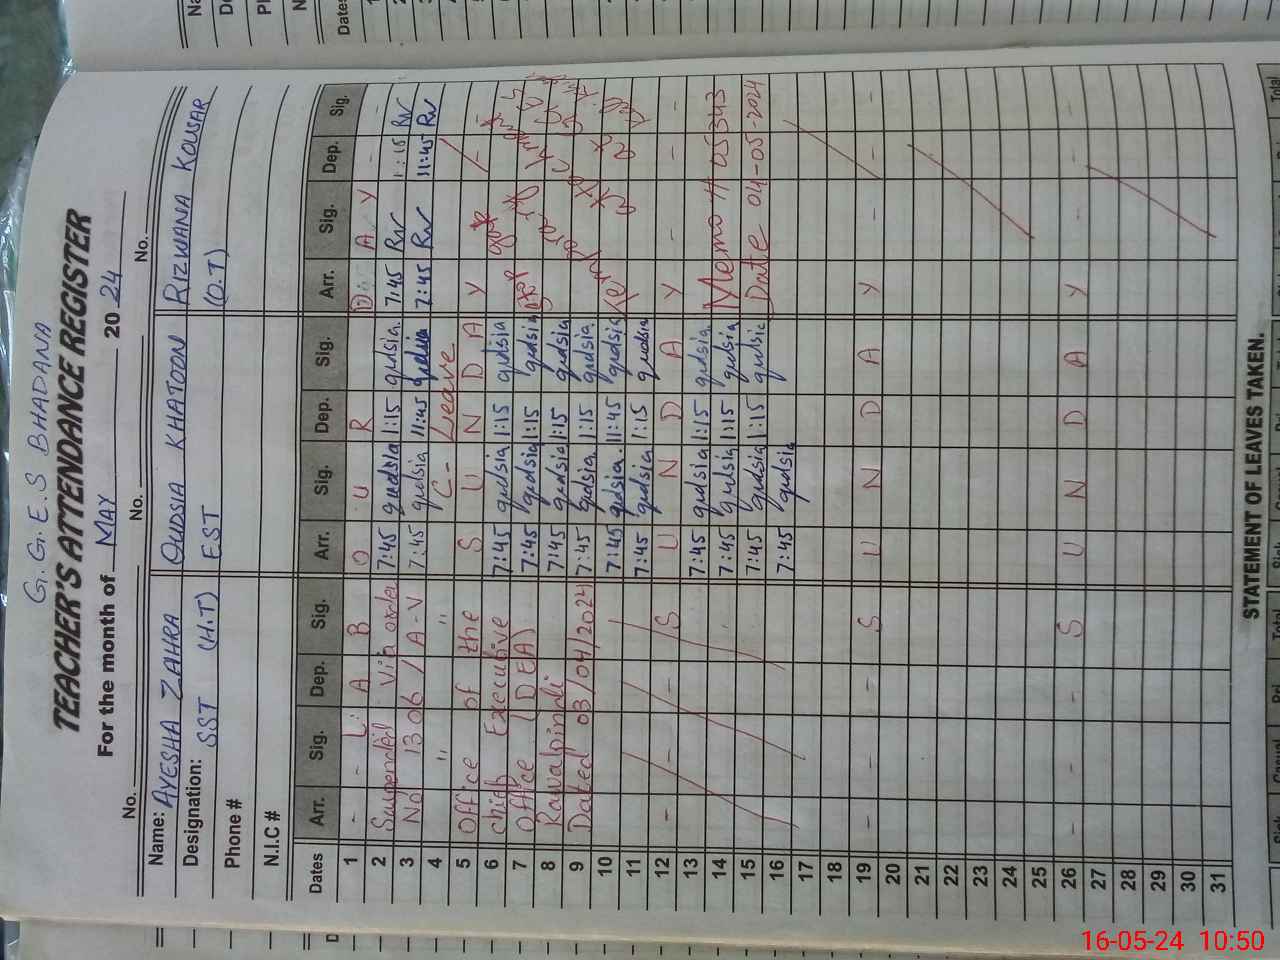 G.G.E.S BHADANA
TEACHER'S ATTENDANCE REGISTER
For the month of MAY 2024
No. No. No.
Name: AYESHA ZAHRA QUDSIA KHATOON RIZWANA KOUSAR
Designation: SST (H.T) EST (O.T)
Phone #
N.I.C #
Dates Arr. Sig. Dep. Sig. Arr. Sig. Dep. Sig. Arr. Sig. Dep. Sig.
1 - - L A B O U R D A Y - -
2 Suspended Via order 7:45 qudsia 1:15 qudsia 7:45 Rw 1:15 Rw
3 No 1306/A-V 7:45 qudsia 11:45 qudsia 7:45 Rw 11:45 Rw
4 " " C- Leave
5 Office of the S U N D A Y -
6 chief Executive 7:45 qudsia 1:15 qudsia
7 Office (DEA) 7:45 qudsia 1:15 qudsia
8 Rawalpindi 7:45 qudsia 1:15 qudsia
9 Dated 03/04/2024 7:45 qudsia 1:15 qudsia
10 7:45 qudsia 11:45 qudsia
11 7:45 qudsia 1:15 qudsia
12 - - - S U N D A Y - - -
13 7:45 qudsia 1:15 qudsia
14 7:45 qudsia 1:15 qudsia Memo # 05343
15 7:45 qudsia 1:15 qudsia Date 04-05-2024
16 7:45 qudsia
17
18
19 - - - S U N D A Y - -
20
21
22
23
24
25
26 - - - S U N D A Y - -
27
28
29
30
31
STATEMENT OF LEAVES TAKEN.
16-05-24 10:50